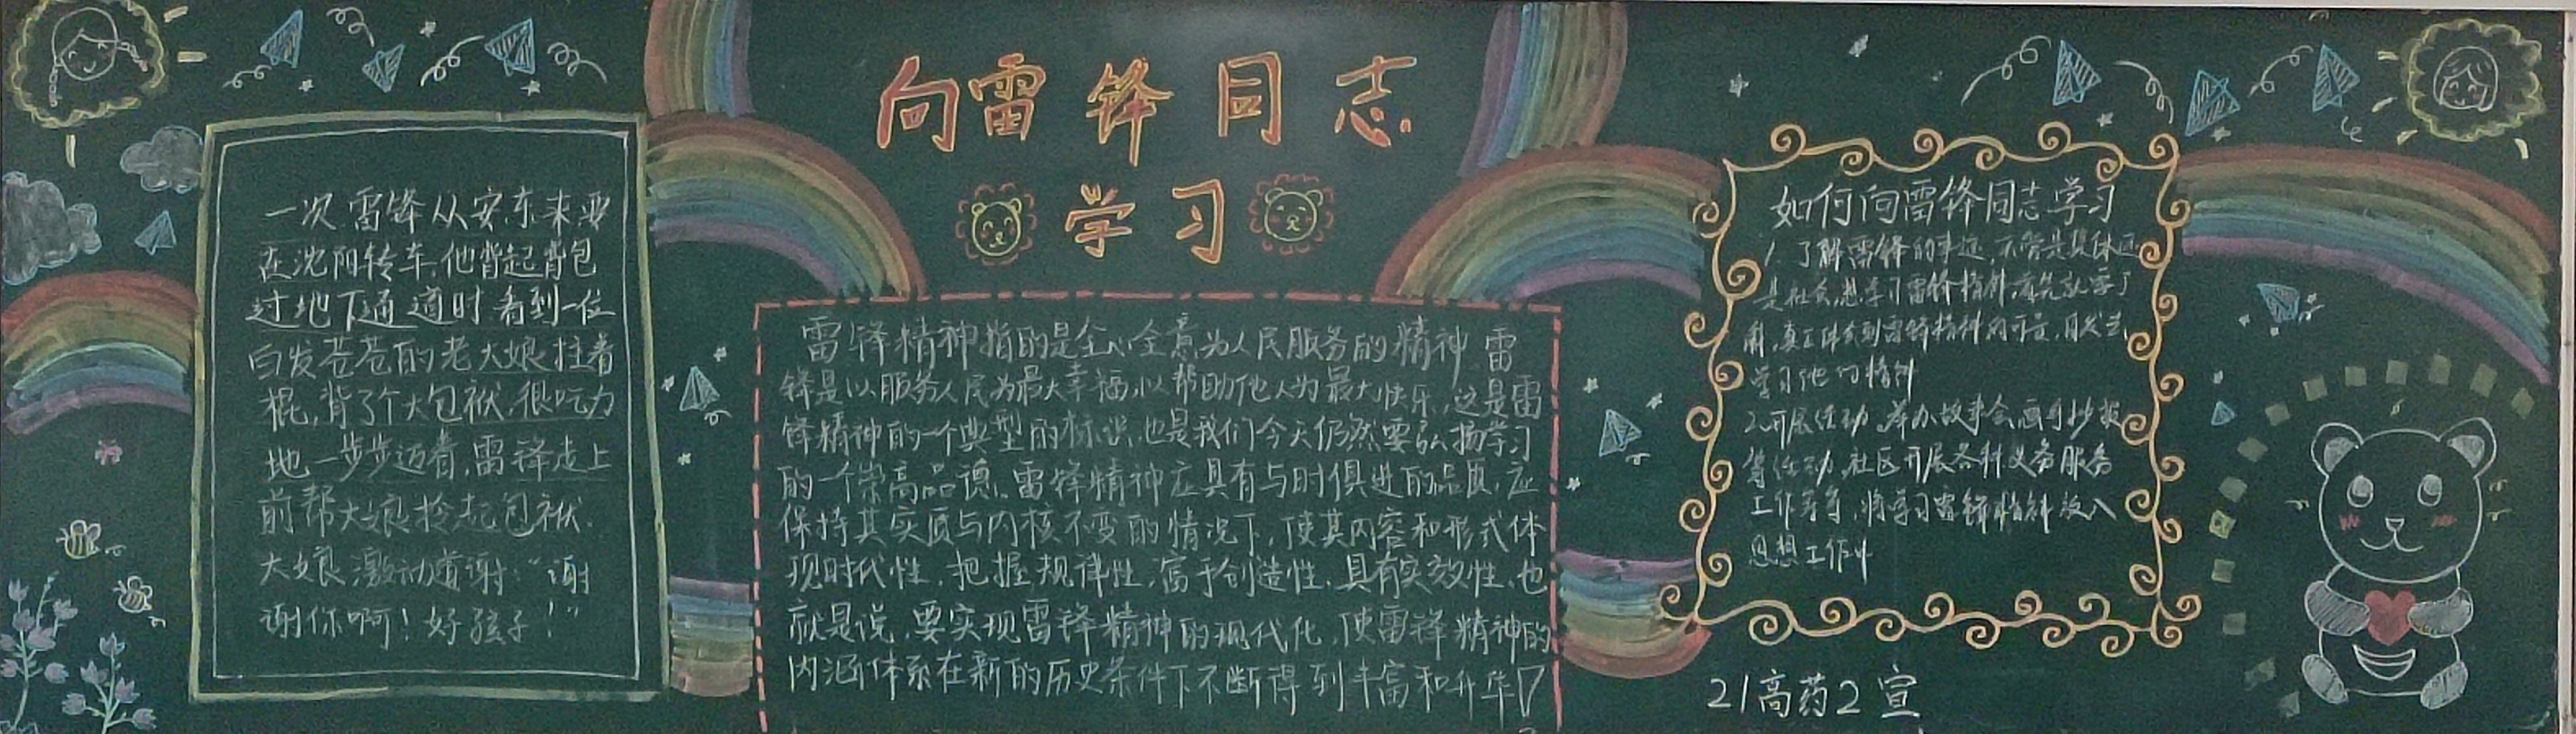 向雷锋同志
学习
一次雷锋从安东来要
在沈阳转车,他背起背包
过地下通道时看到一位
白发苍苍的老大娘拄着
棍,背了个大包袱,很吃力
地一步步迈着,雷锋走上
前帮大娘拎起包袱.
大娘激动道谢:“谢
谢你啊!好孩子!”
雷锋精神指的是全心全意为人民服务的精神.雷
锋是以服务人民为最大幸福,以帮助他人为最大快乐,这是雷
锋精神的一个典型的标识,也是我们今天仍然要弘扬学习
的一个崇高品德.雷锋精神应具有与时俱进的品质,应
保持其实质与内核不变的情况下,使其内容和形式体
现时代性,把握规律性,富于创造性,具有实效性,也
就是说,要实现雷锋精神的现代化,使雷锋精神的
内涵体系在新的历史条件下不断得到丰富和升华
如何向雷锋同志学习
1.了解雷锋的事迹,不管是具体还
是社会,想学习雷锋精神,首先就要了
解,真正体会到雷锋精神的可贵,自发去
学习他的精神
2.开展活动,举办故事会,画手抄报
等活动,社区开展各种义务服务
工作等等,将学习雷锋精神放入
思想工作中
21高药2宣